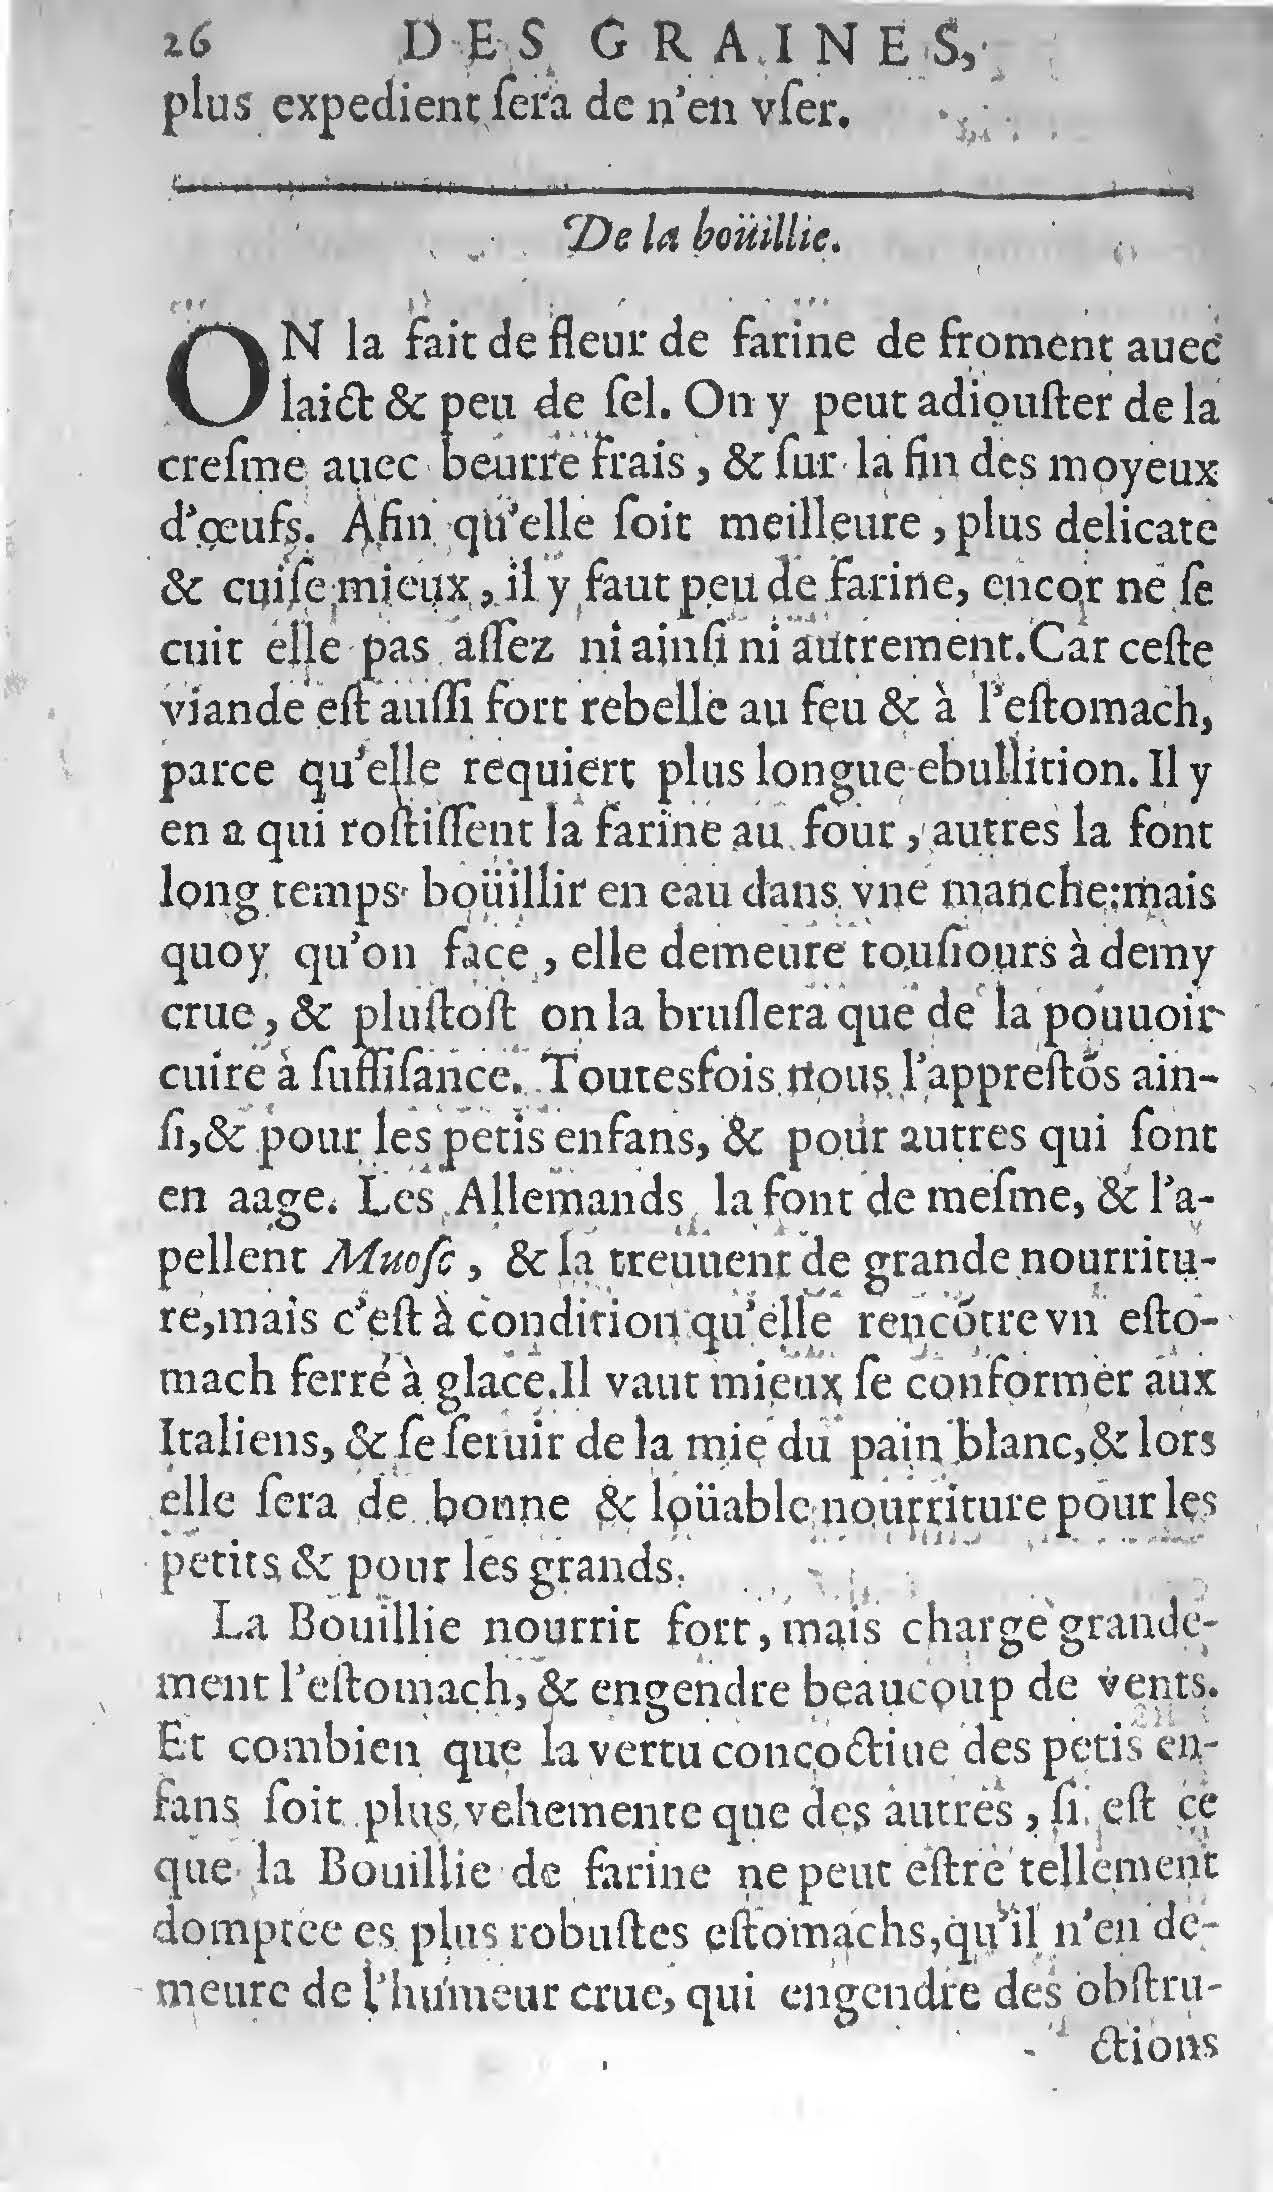 26 DES GRAINES,
plus expedient ſera de n'en vſer.
De la boüillie.
ON la fait de fleur de farine de froment auec
laict & peu de ſel. On y peut adiouſter de la
creſme auec beurre frais, & ſur la fin des moyeux
d'œufs. Afin qu'elle ſoit meilleure, plus delicate
& cuiſe mieux, il y faut peu de farine, encor ne ſe
cuit elle pas aſſez ni ainſi ni autrement. Car ceſte
viande eſt auſſi fort rebelle au feu & à l'eſtomach,
parce qu'elle requiert plus longue ebullition. Il y
en a qui roſtiſſent la farine au four, autres la font
long temps boüillir en eau dans vne manche: mais
quoy qu'on face, elle demeure touſiours à demy
crue, & pluſtoſt on la bruſlera que de la pouuoir
cuire à suffiſance. Toutesfois nous l'appreſtõs ain-
ſi, & pour les petis enfans, & pour autres qui ſont
en aage. Les Allemands la font de meſme, & l'a-
pellent Muoſc, & la treuuent de grande nourritu-
re, mais c'eſt à condition qu'elle rencõtre vn eſto-
mach ferré à glace. Il vaut mieux ſe conformer aux
Italiens, & ſe ſeruir de la mie du pain blanc, & lors
elle ſera de bonne & loüable nourriture pour les
petits & pour les grands.
La Bouillie nourrit fort, mais charge grande-
ment l'eſtomach, & engendre beaucoup de vents.
Et combien que la vertu concoctiue des petis en-
fans ſoit plus vehemente que des autres, ſi eſt ce
que la Bouillie de farine ne peut eſtre tellement
domptee es plus robuſtes eſtomachs, qu'il n'en de-
meure de l'humeur crue, qui engendre des obſtru-
ctions